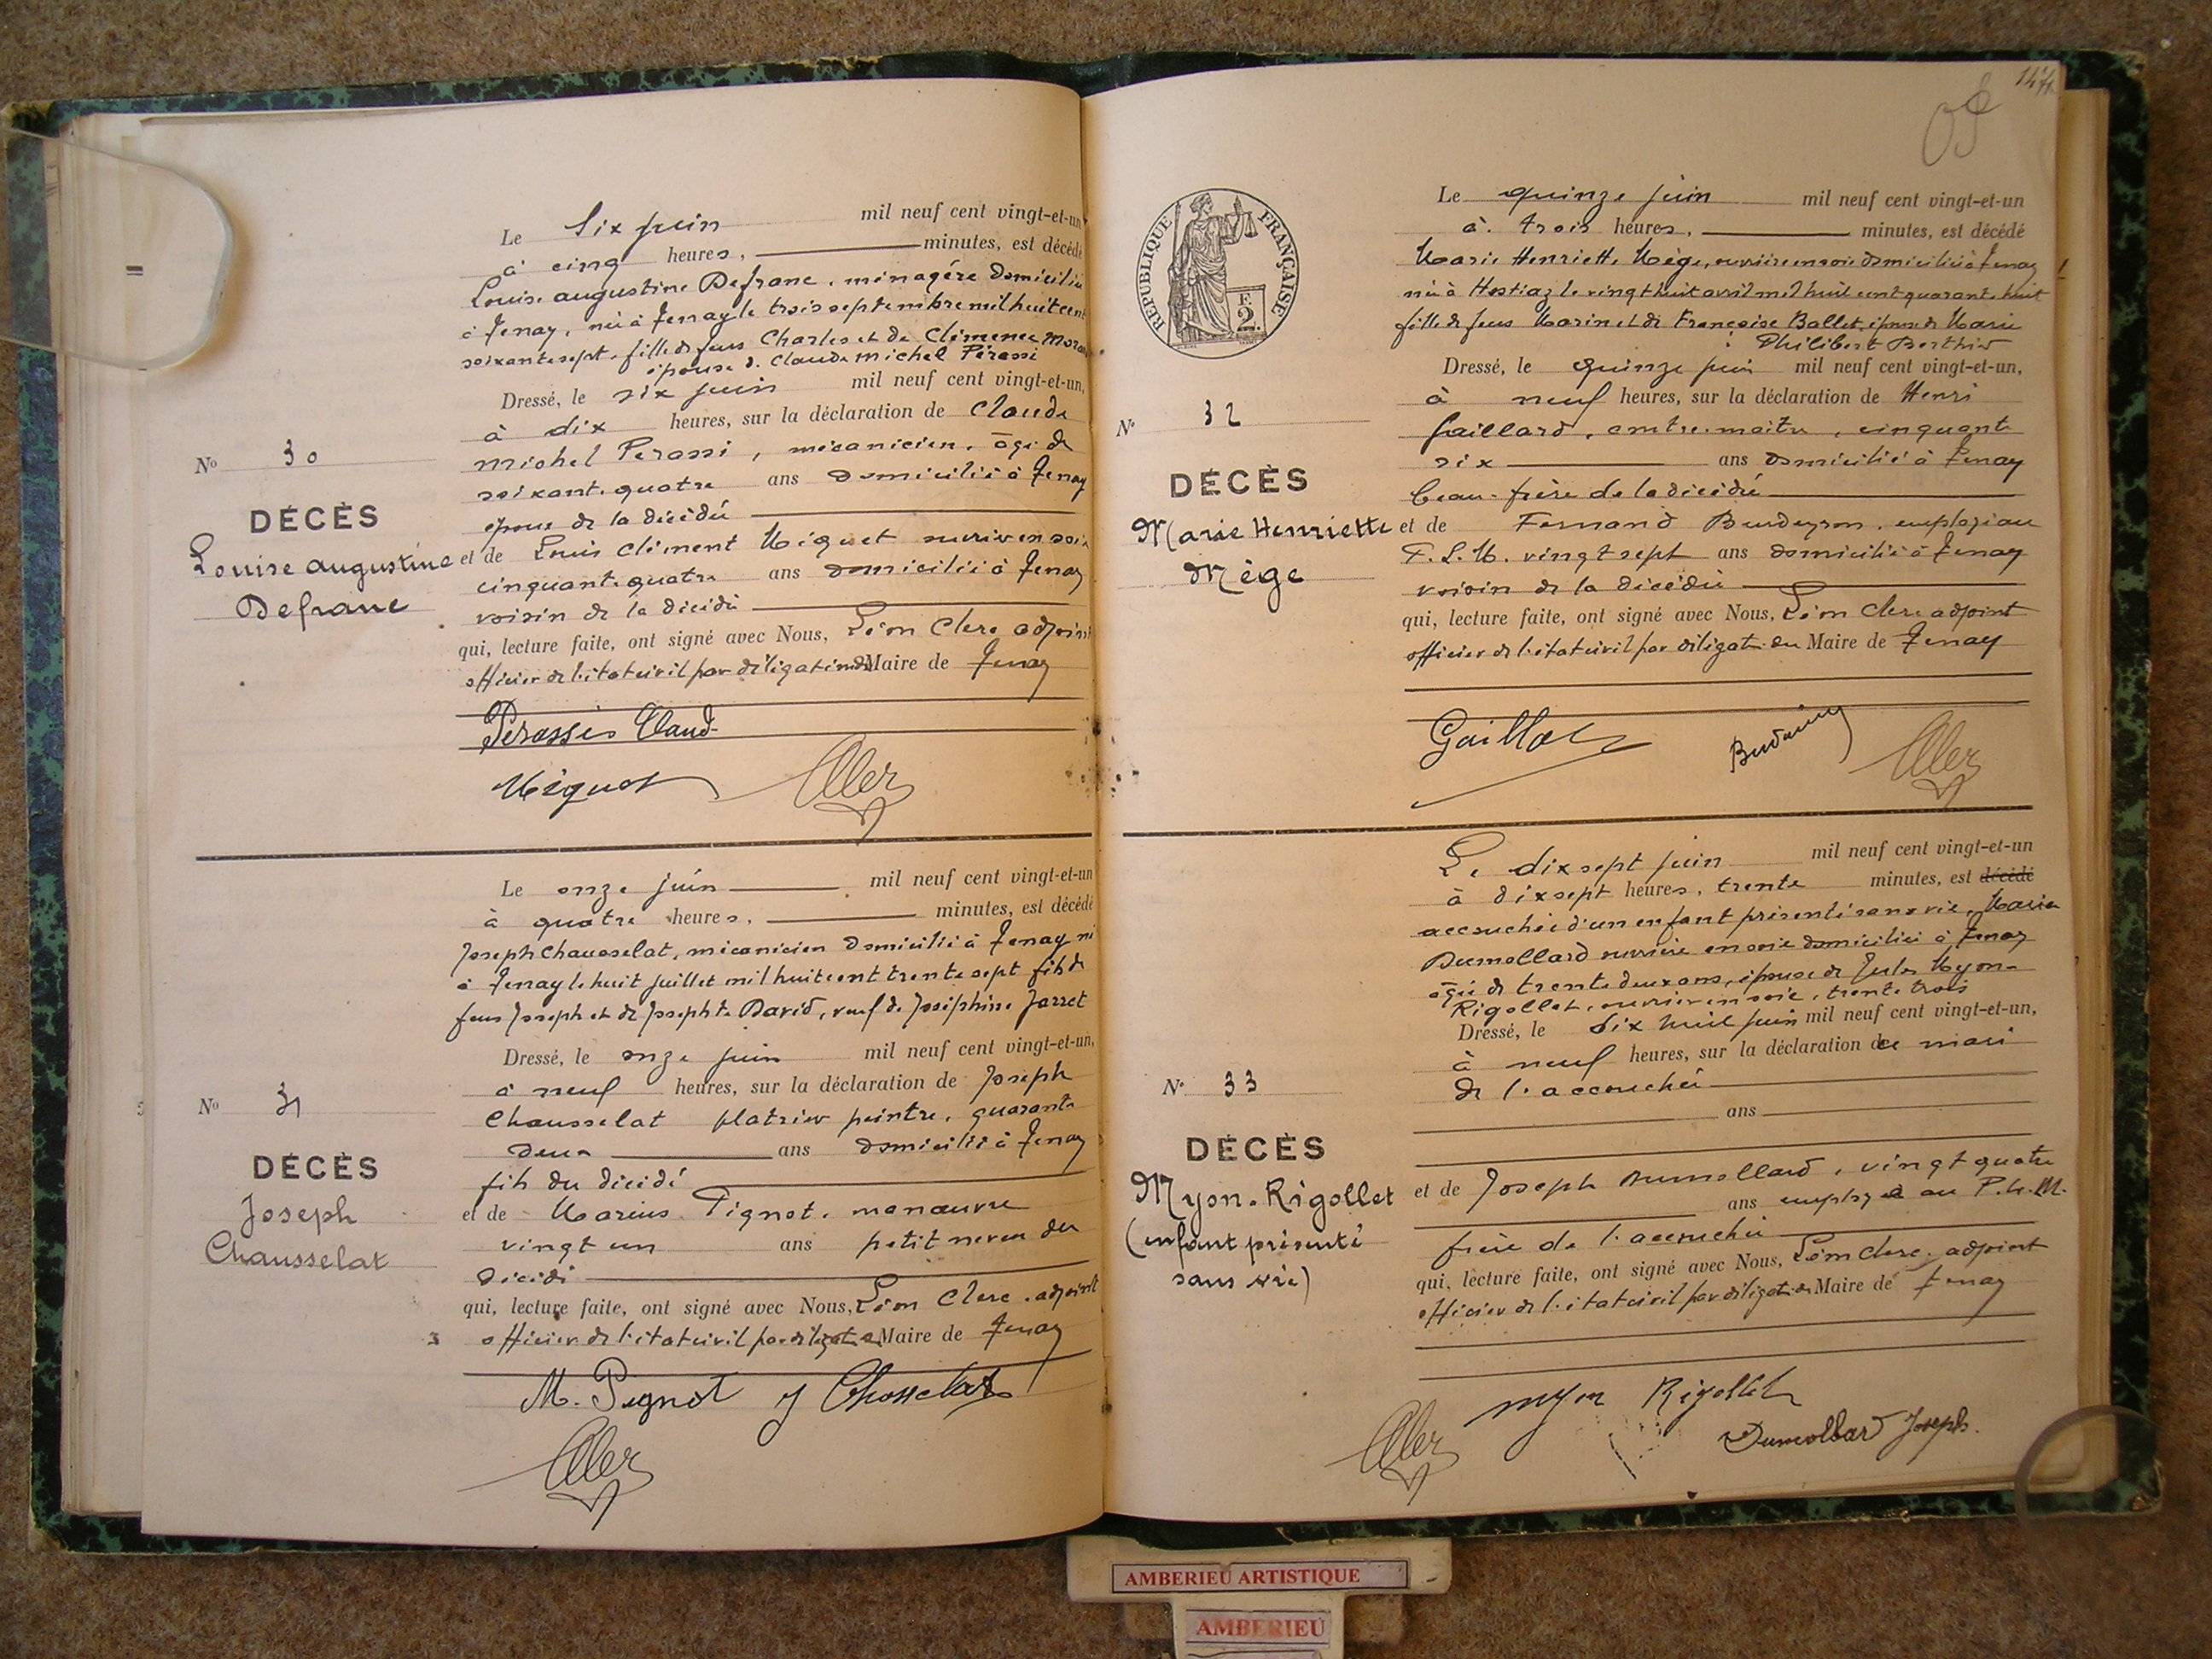 Le Six juin mil neuf cent vingt-et-un
à cinq heures, minutes, est décédé
Louise augustine Defranc, ménagère domiciliée
à Tenay, née à Tenay le trois septembre mil huit cent
soixante sept, fille de feus Charles et de Clémence
épouse d. Claude michel Pérassi
Dressé, le six juin mil neuf cent vingt-et-un,
à dix heures, sur la déclaration de Claude
michel Perassi, mécanicien, âgé de
soixante quatre ans domicilié à Tenay
époux de la décédée
et de Louis Clément Miguet ouvrier en soie
cinquante quatre ans domicilié à Tenay
voisin de la décédée
qui, lecture faite, ont signé avec Nous, Léon Clerc adjoint
officier de l'état civil par délégation du Maire de Tenay
No 30
DÉCÈS
Louise augustine
Defranc
Perassis Claud
Miguet
Le onze juin mil neuf cent vingt-et-un
à quatre heures, minutes, est décédé
Joseph Chausselat, mécanicien domicilié à Tenay né
à Tenay le huit juillet mil huit cent trente sept fils de
feus Joseph et de Josephte David, veuf de Joséphine Jarret
Dressé, le onze juin mil neuf cent vingt-et-un,
à neuf heures, sur la déclaration de Joseph
Chausselat platrier peintre, quarante
deux ans domicilié à Tenay
fils du décédé
et de Marius Pignot, manœuvre
vingt un ans petit neveu du
décédé
qui, lecture faite, ont signé avec Nous, Léon Clerc, adjoint
officier de l'état civil par délégat. du Maire de Tenay
No 31
DÉCÈS
Joseph
Chausselat
M. Pignot J Chosselat
147
Le quinze juin mil neuf cent vingt-et-un
à trois heures, minutes, est décédé
Marie Henriette Mège, ouvrière en soie domiciliée à Tenay
née à Hostiaz le vingt huit avril mil huit cent quarante huit
fille de feus Marin et de Françoise Ballet, épouse de Marie
Philibert Berthier
Dressé, le quinze juin mil neuf cent vingt-et-un,
à neuf heures, sur la déclaration de Henri
Gaillard, contre-maître, cinquante
six ans domicilié à Tenay
beau-frère de la décédée
et de Fernand Burdeyron, employé au
P. L. M. vingt sept ans domicilié à Tenay
voisin de la décédée
qui, lecture faite, ont signé avec Nous, Léon Clerc adjoint
officier de l'état civil par délégat. du Maire de Tenay
RÉPUBLIQUE FRANÇAISE
F.
2.
No 32
DÉCÈS
Marie Henriette
Mège
Gaillard
Le dix sept juin mil neuf cent vingt-et-un
à dix sept heures, trente minutes, est décédé
accouchée d'un enfant présenté sans vie, Marie
Dumollard ouvrière en soie domiciliée à Tenay
âgée de trente deux ans, épouse de Jules Myon-
Rigollet, ouvrier en soie, trente trois
Dressé, le dix huit juin mil neuf cent vingt-et-un,
à neuf heures, sur la déclaration de ce mari
de l'accouchée
ans
et de Joseph Dumollard, vingt quatre
ans employé au P.L.M.
frère de l'accouchée
qui, lecture faite, ont signé avec Nous, Léon Clerc, adjoint
officier de l'état civil par délégat. du Maire de Tenay
No 33
DÉCÈS
Myon-Rigollet
(enfant présenté
sans vie)
myon Rigollet
Dumollard Joseph.
AMBERIEU ARTISTIQUE
AMBERIEU